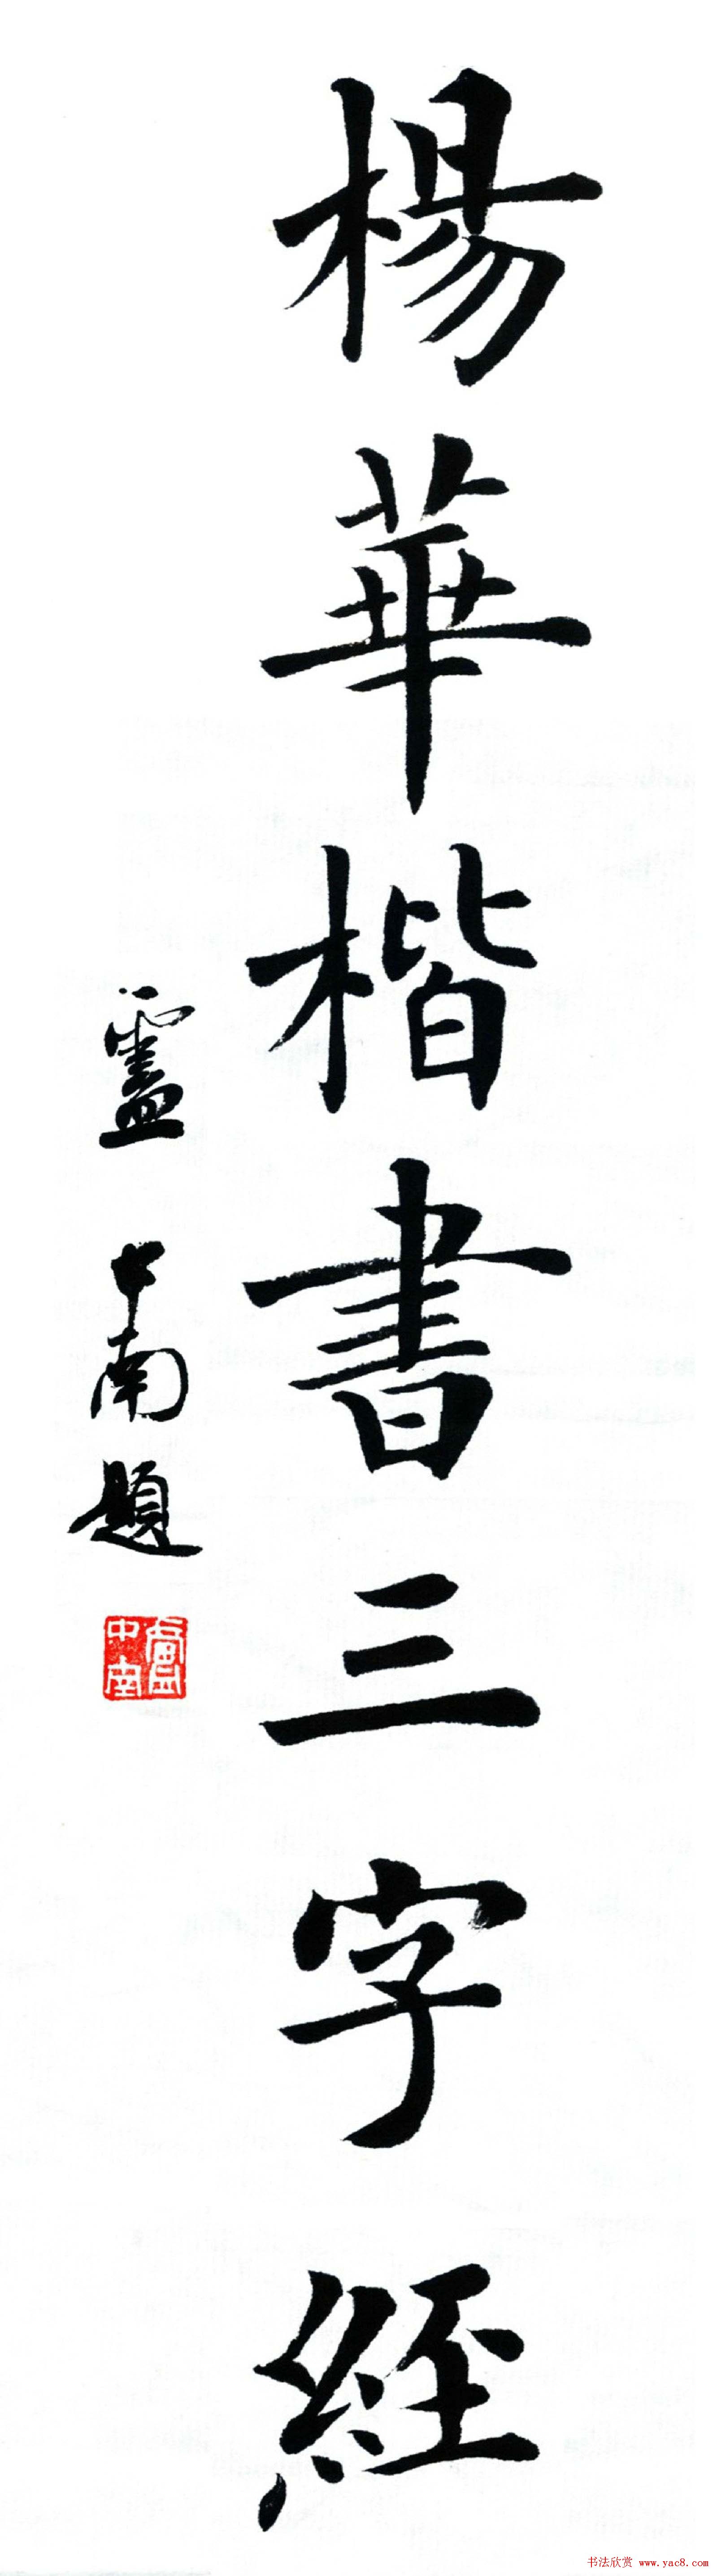 楊華楷書三字經
盧中南題
盧中南
书法欣赏 www.yac8.com